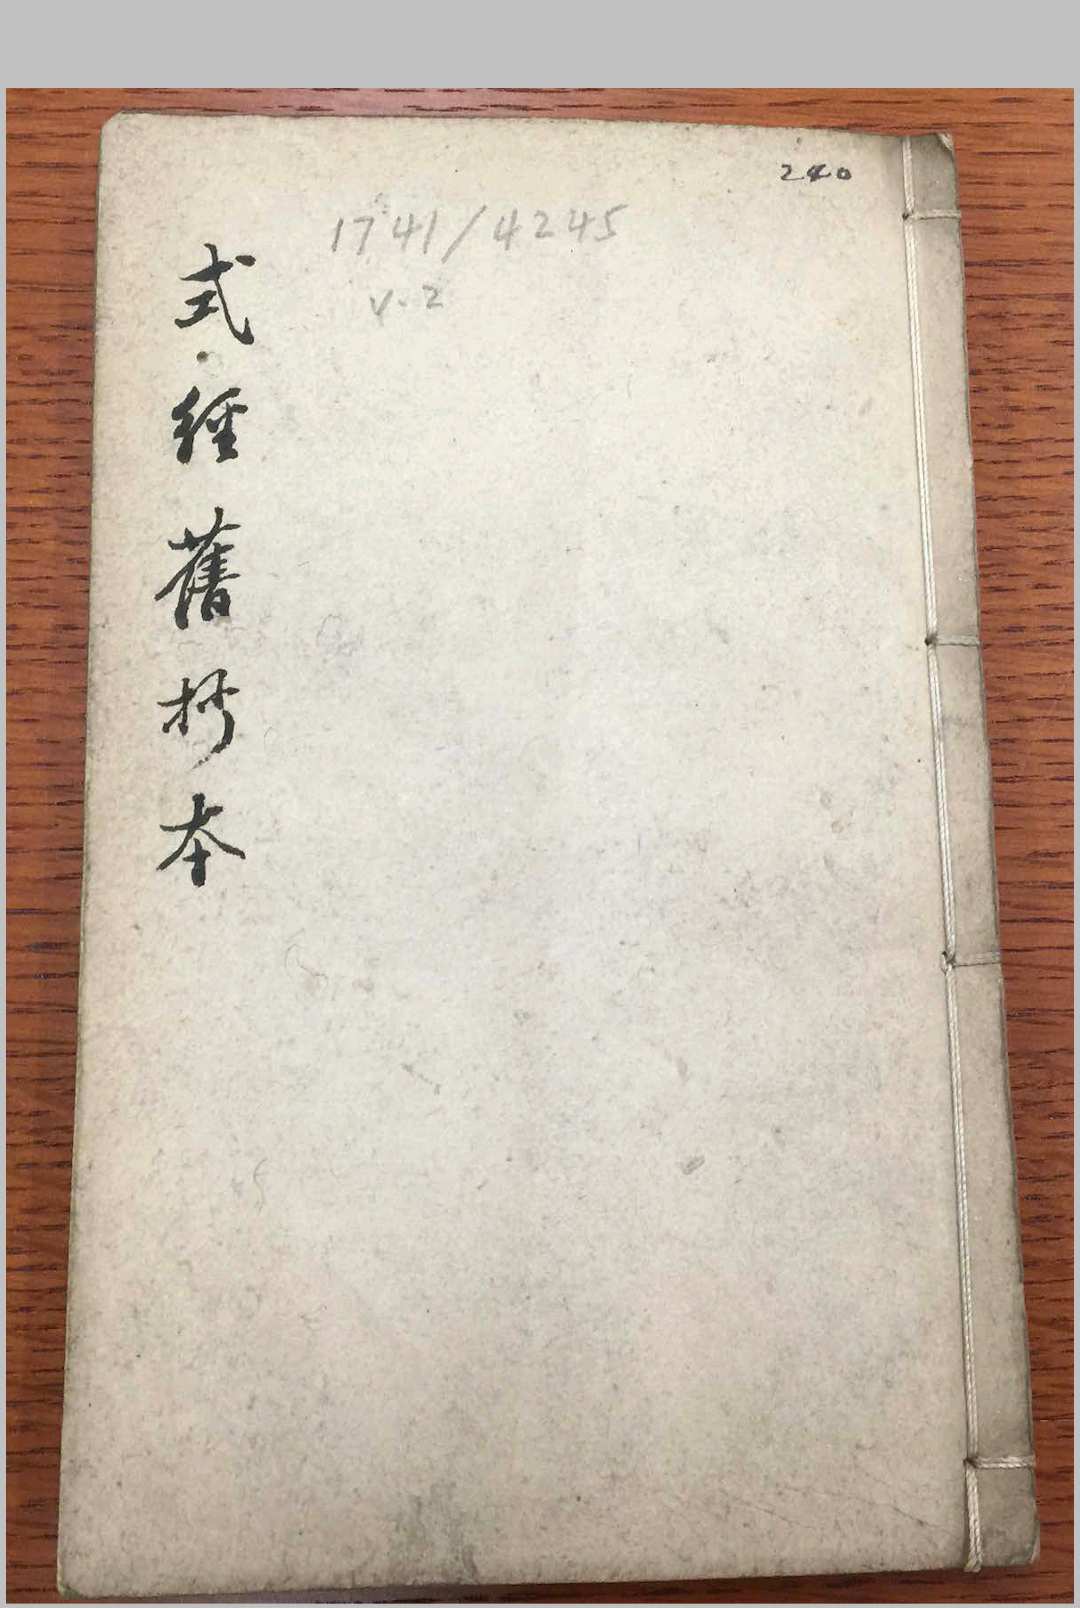 240
1741/4245
v.2
式經舊抄本